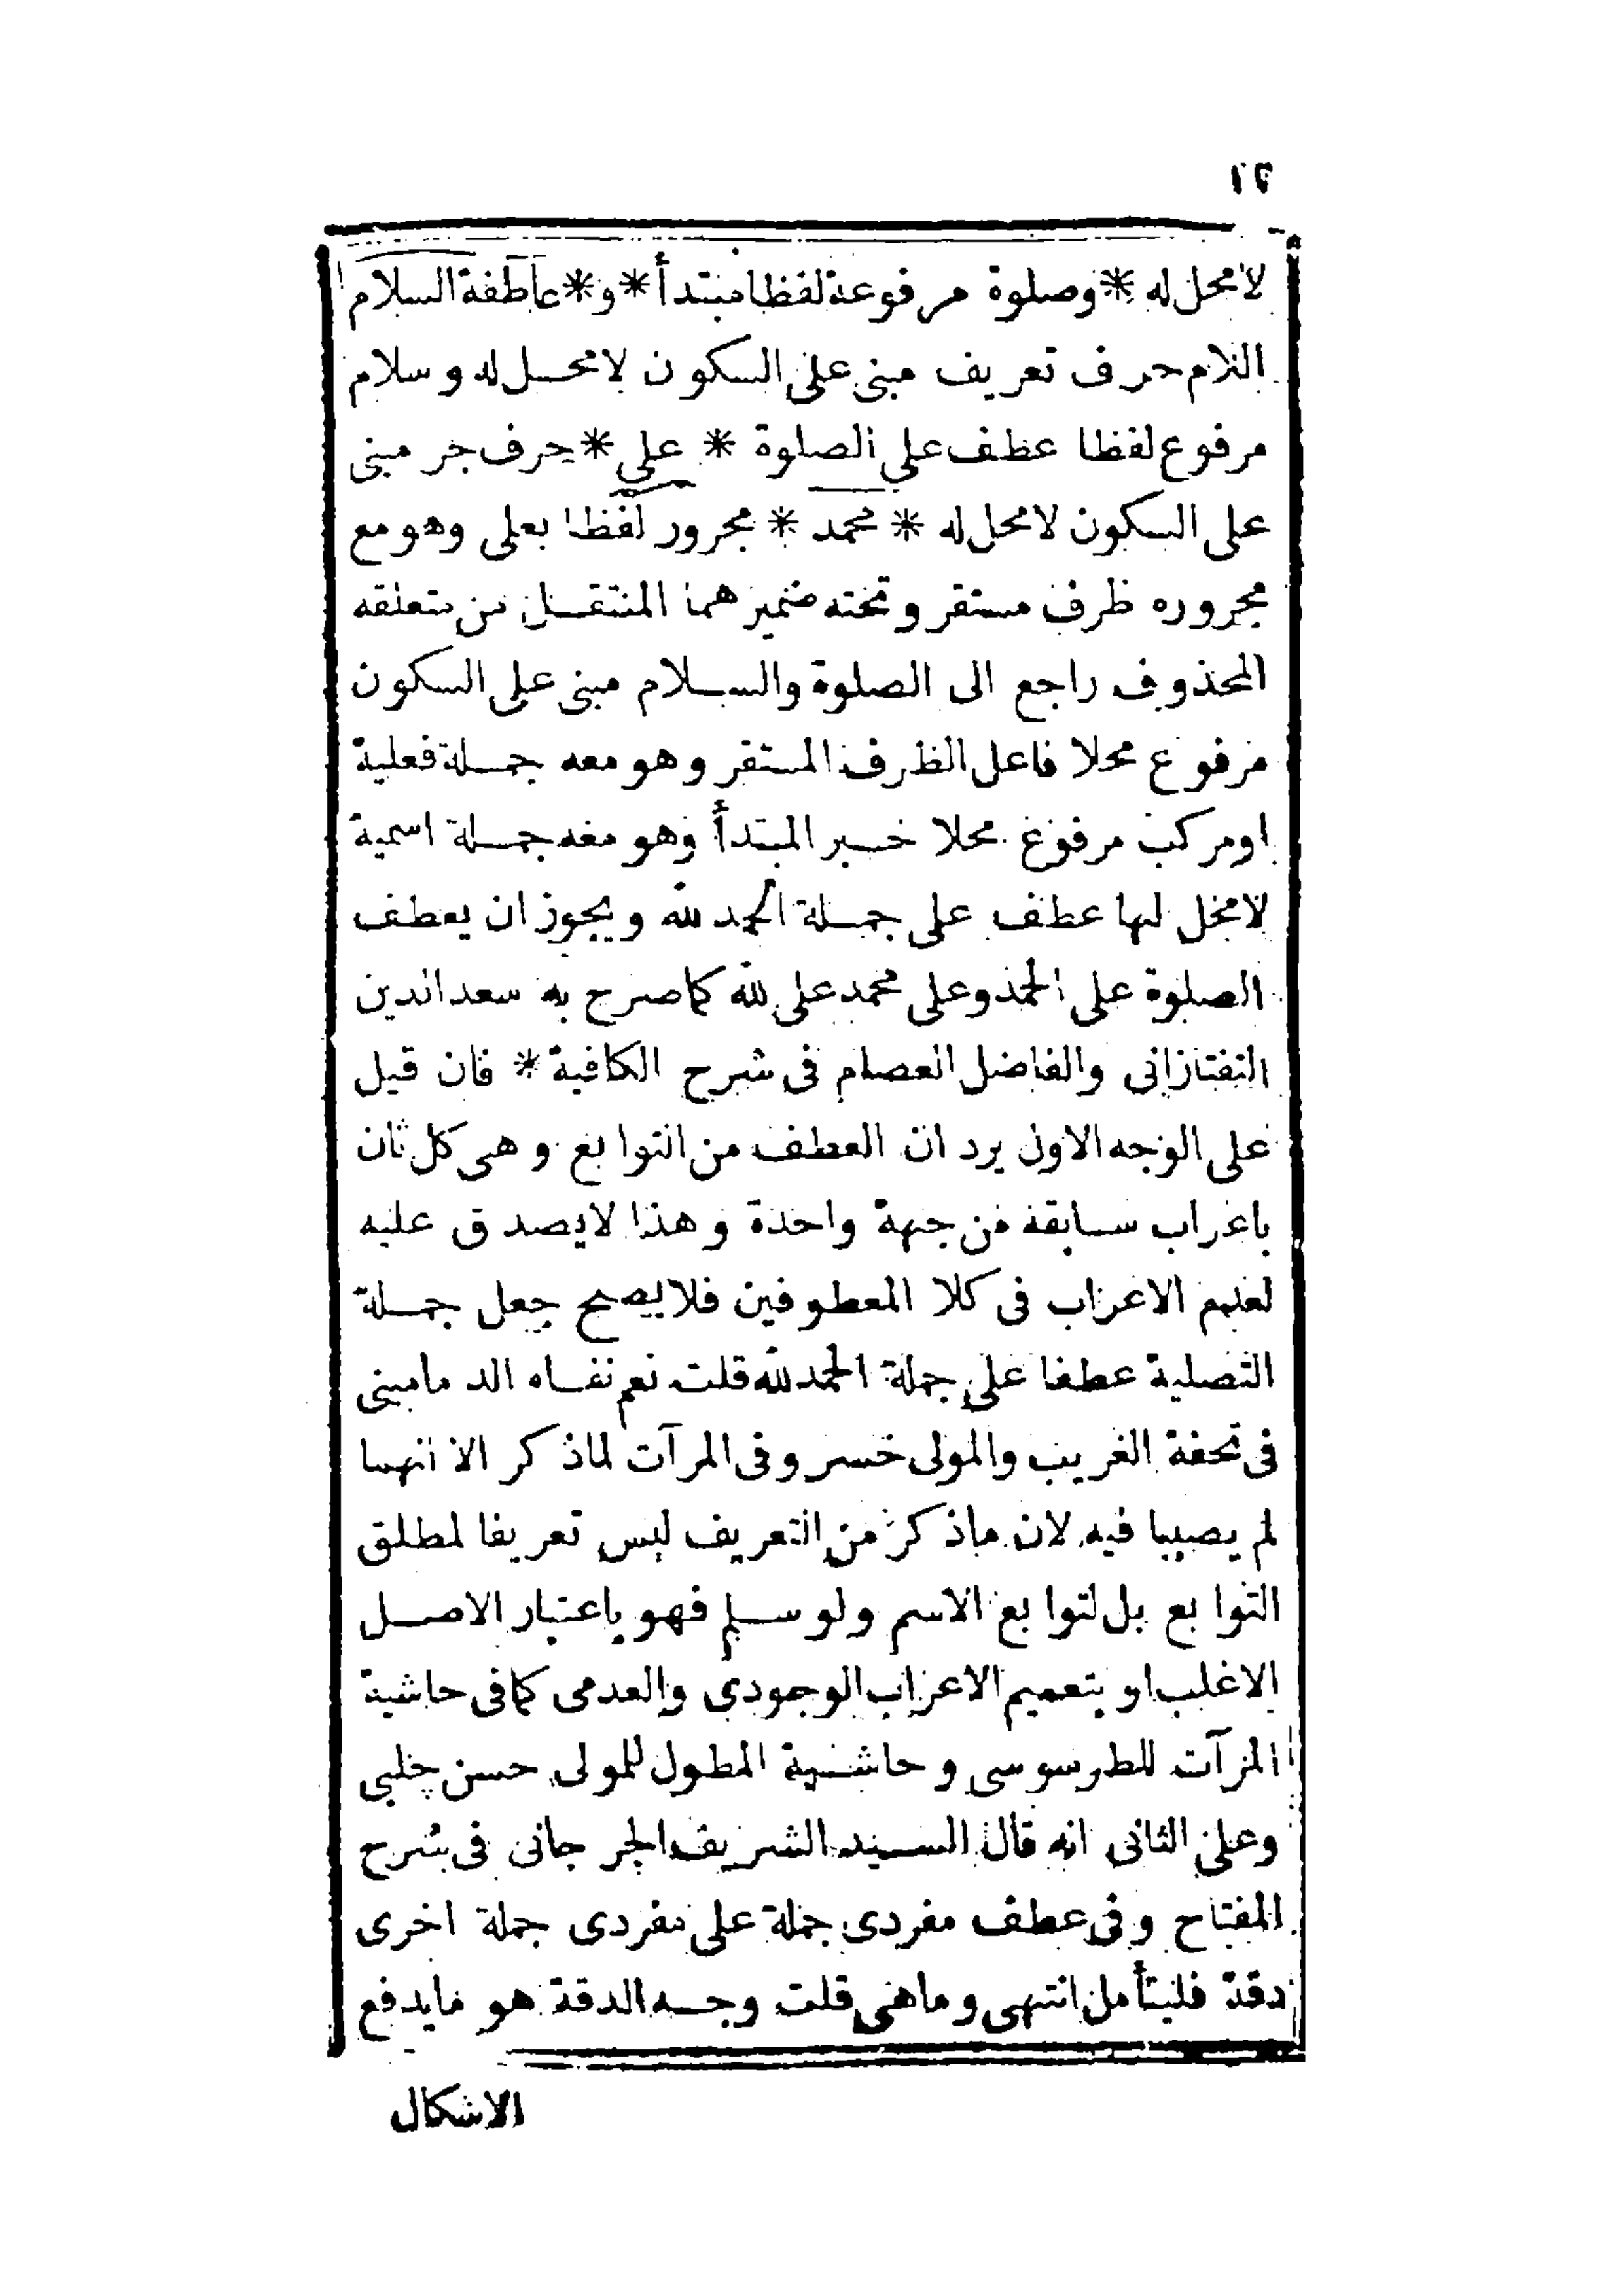 ١٢
لا محل له * وصلوة مرفوعة لفظا مبتدأ * و * عاطفة السلام
اللام حرف تعريف مبنى على السكون لا محل له وسلام
مرفوع لفظا عطف على الصلوة * على * حرف جر مبنى
على السكون لا محل له * محمد * مجرور لفظا بعلى وهو مع
مجروره ظرف مستقر وتحته ضمير هما المنتقل من متعلقه
المحذوف راجع الى الصلوة والسلام مبنى على السكون
مرفوع محلا فاعل الظرف المستقر وهو معه جملة فعلية
او مركب مرفوع محلا خبر المبتدأ وهو معه جملة اسمية
لا محل لها عطف على جملة الحمد لله ويجوز ان يعطف
الصلوة على الحمد وعلى محمد على لله كما صرح به سعد الدين
التفتازانى والفاضل العصام فى شرح الكافية * فان قيل
على الوجه الاول يرد ان العطف من التوابع وهى كل ثان
باعراب سابقه من جهة واحدة وهذا لا يصدق عليه
لعدم الاعراب فى كلا المعطوفين فلا يصح جعل جملة
التصلية عطفا على جملة الحمد لله قلت نعم نفاه الدمامينى
فى تحفة الغريب والمولى خسرو فى المرآت لما ذكر الا انهما
لم يصيبا فيه لان ما ذكر من التعريف ليس تعريفا لمطلق
التوابع بل لتوابع الاسم ولو سلم فهو باعتبار الاصل
الاغلب او بتعميم الاعراب الوجودى والعدمى كما فى حاشية
المرآت للطرسوسى وحاشية المطول للمولى حسن چلبى
وعلى الثانى انه قال السيد الشريف الجرجانى فى شرح
المفتاح وفى عطف مفردى جملة على مفردى جملة اخرى
دقة فليتأمل انتهى وما هى قلت وجه الدقة هو ما يدفع
الاشكال